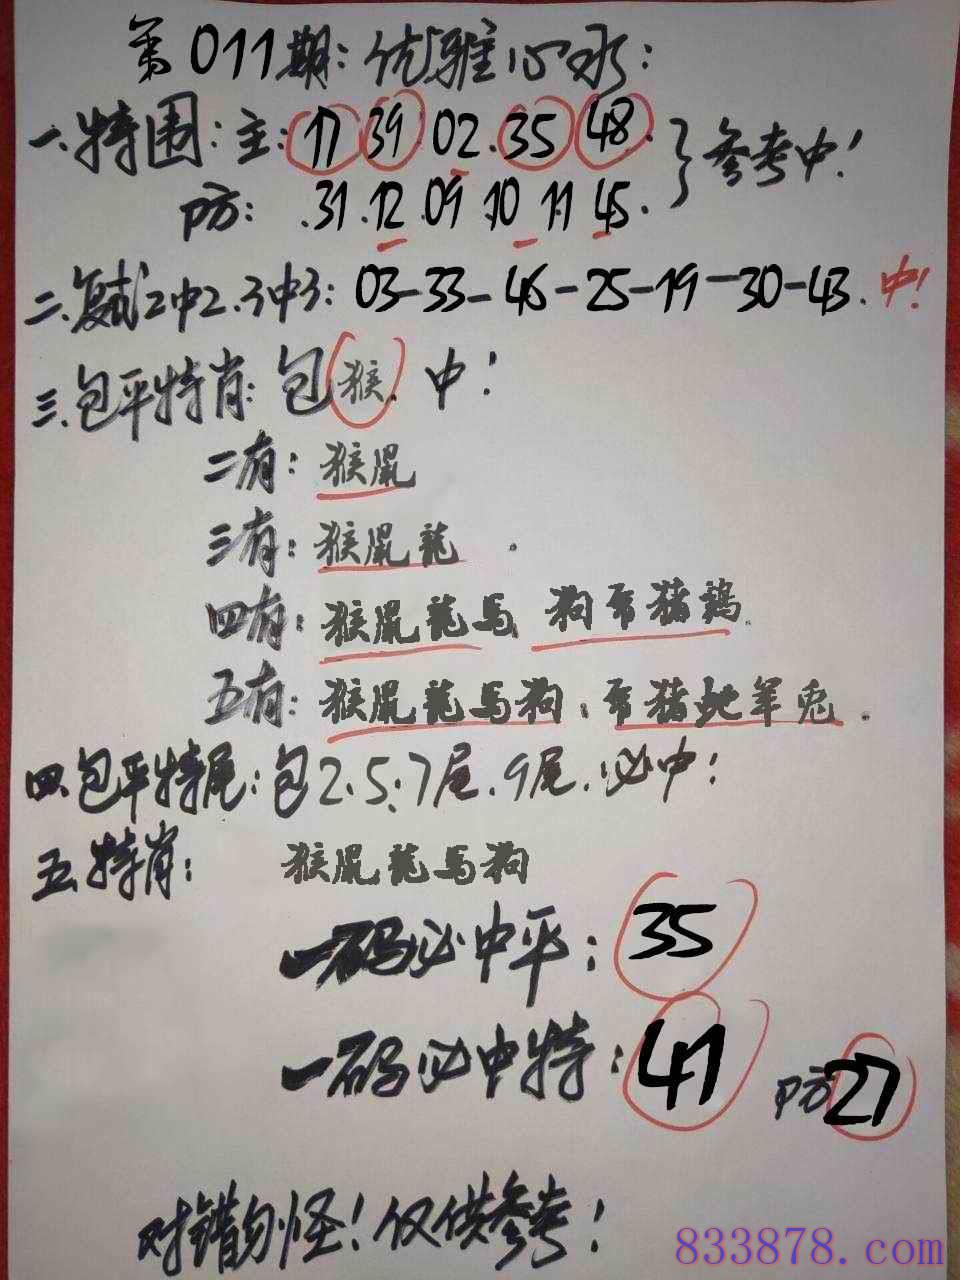 第011期:优雅心水:
一.特围:主:17 39 02.35 48.}参考中!
防: .31.12.09.10 11 45.
二.复试2中2.3中3:03-33-46-25-19-30-43.中!
三.包平特肖:包猴.中!
二有:猴鼠
三有:猴鼠龍.
四有:猴鼠龍马 狗虎猪鸡.
五有:猴鼠龍马狗、虎猪蛇羊兔.
四.包平特尾:包2.5.7尾.9尾.必中!
五.特肖: 猴鼠龍马狗
一码必中平:35
一码必中特:41 防27
对错勿怪!仅供参考!
833878.com